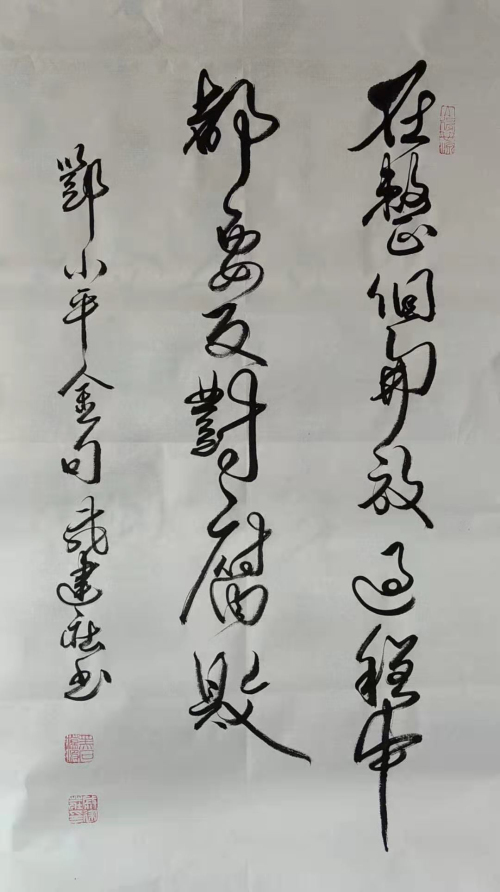 在整個開放過程中
都要反對腐敗
鄧小平金句 建 书